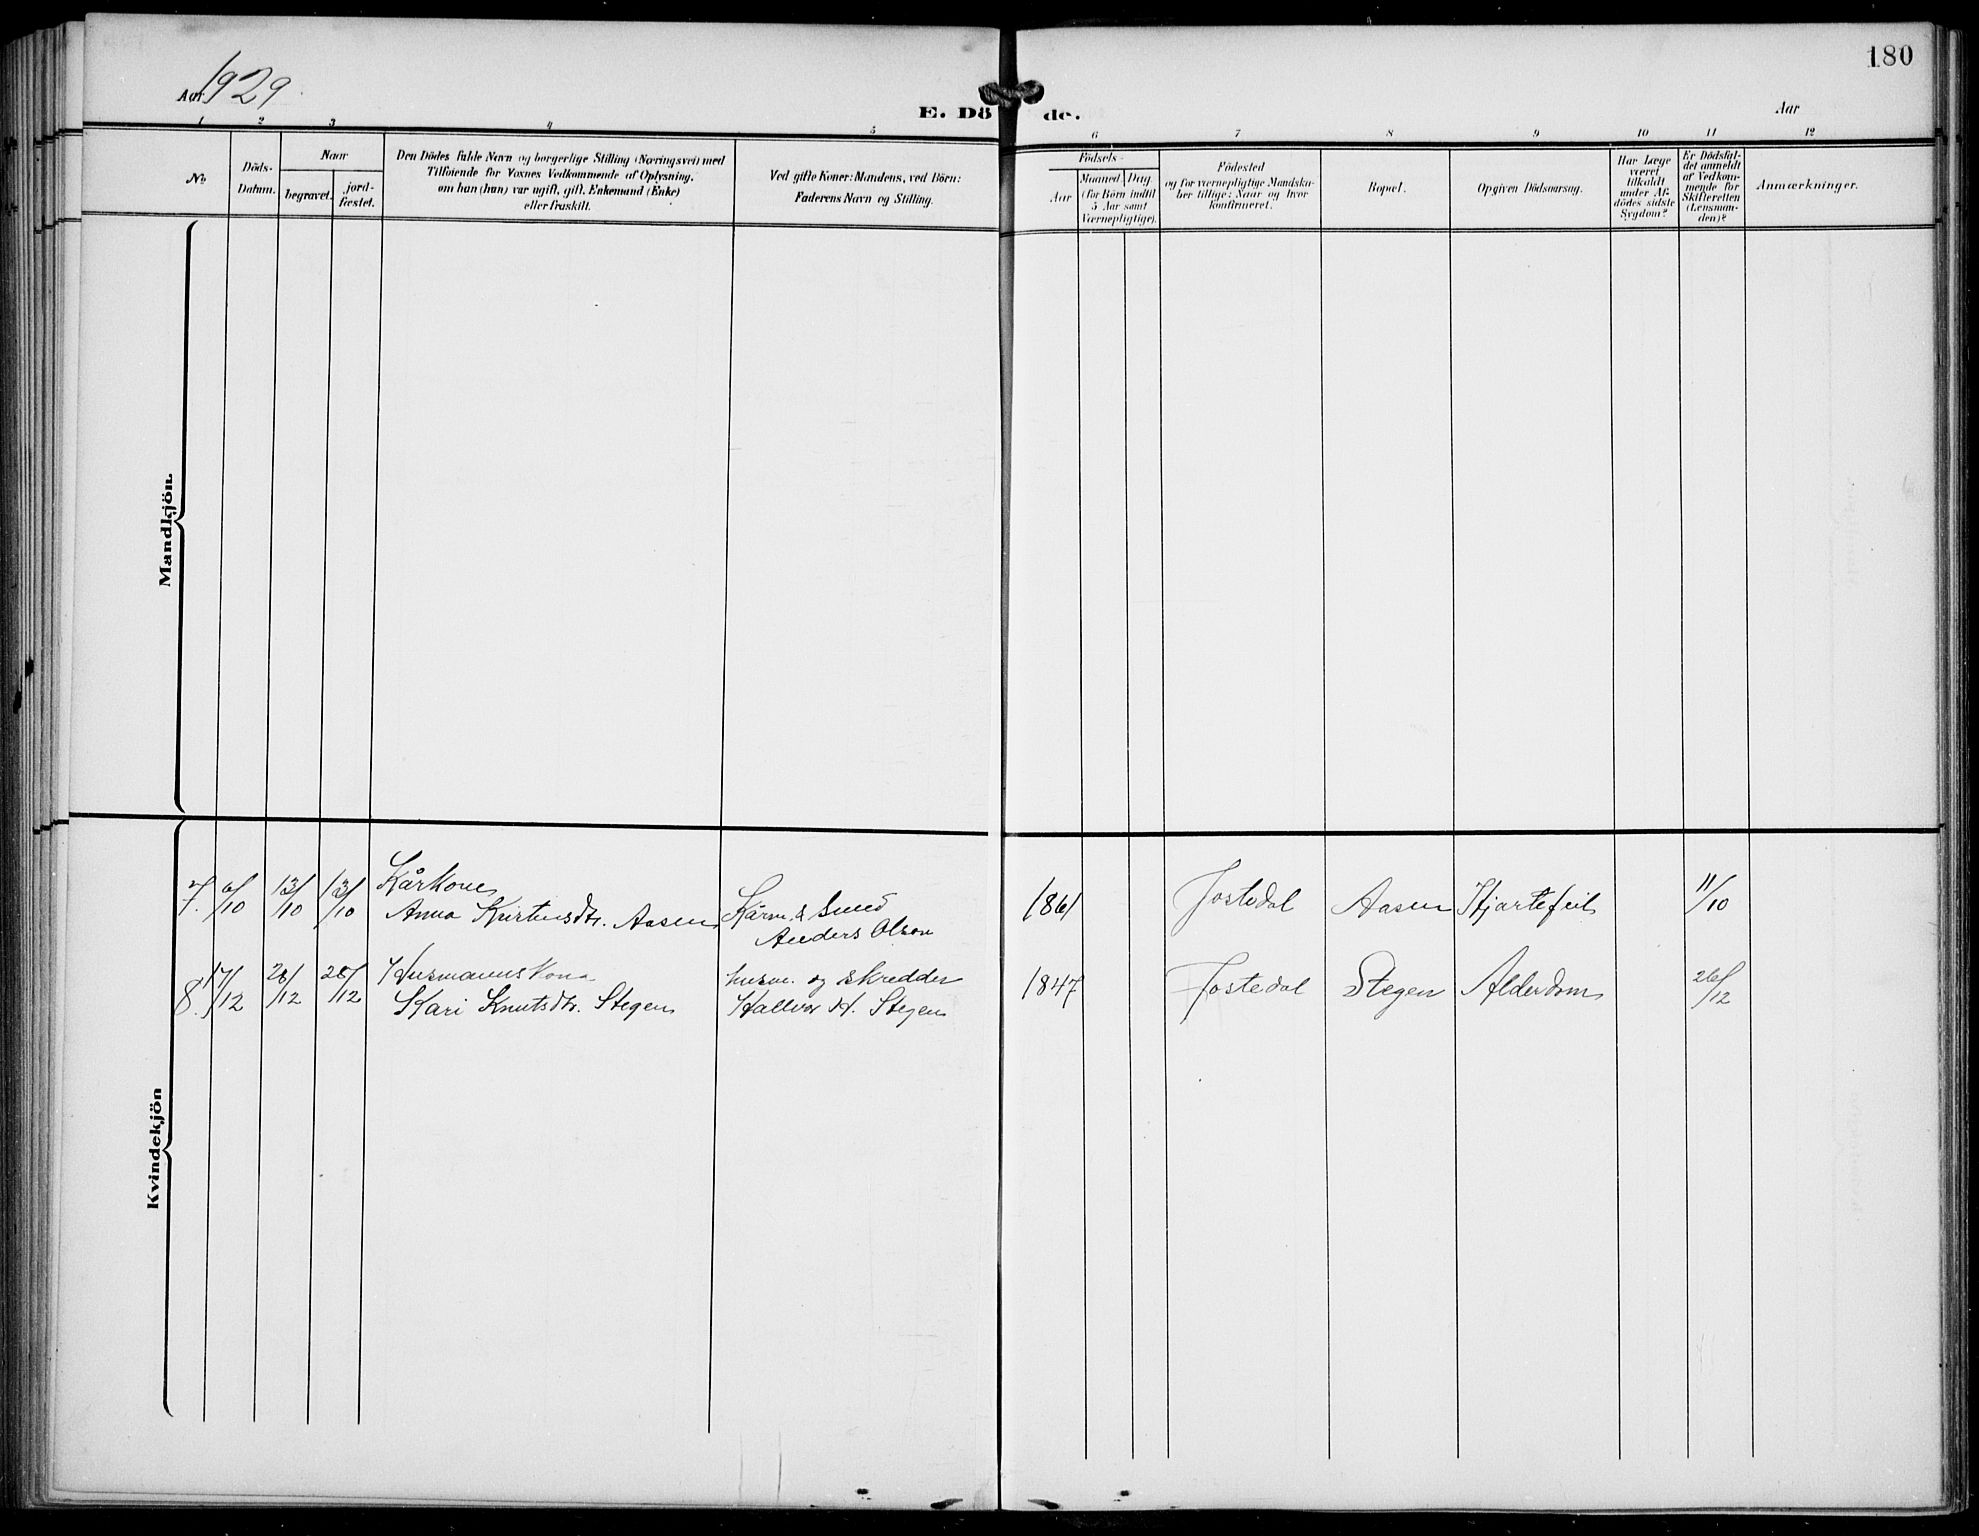 180
Aar 1929
E. Döde.
Aar
1 2 3 4 5 6 7 8 9 10 11 12
No.
Döds-
Datum.
Naar
begravet.
jord-
fæstet.
Den Dödes fulde Navn og borgerlige Stilling (Næringsvei) med
Tilföiende for Voxnes Vedkommende af Oplysning,
om han (hun) var ugift, gift, Enkemand (Enke)
eller fraskilt.
Ved gifte Koner: Mandens, ved Börn:
Faderens Navn og Stilling.
Födsels-
Aar
Maaned Dag
(for Börn indtil
5 Aar samt
Værnepligtige).
Födested
og for værnepligtige Mandska-
ber tillige: Naar og hvor
konfirmeret.
Bopæl.
Opgiven Dödsaarsag.
Har Læge
været
tilkaldt
under Af-
dödes sidste
Sygdom?
Er Dödsfal-
det anmeldt
af Vedkom-
mende for
Skifteretten
(Lensman-
den)?
Anmærkninger.
Mandkjön.
Kvindekjön
7. 6/10 13/10 13/10 Kårkone
Anna Kristensdtr. Aasen
Kårm. & Smed
Anders Olsen
1861 Jostedal Aasen Hjartefeil 11/10
8. 17/12 28/12 28/12 Husmannskona
Kari Knutsdtr. Stegen
husm. og skredder
Hallvor H. Stegen
1847 Jostedal Stegen Alderdom 26/12